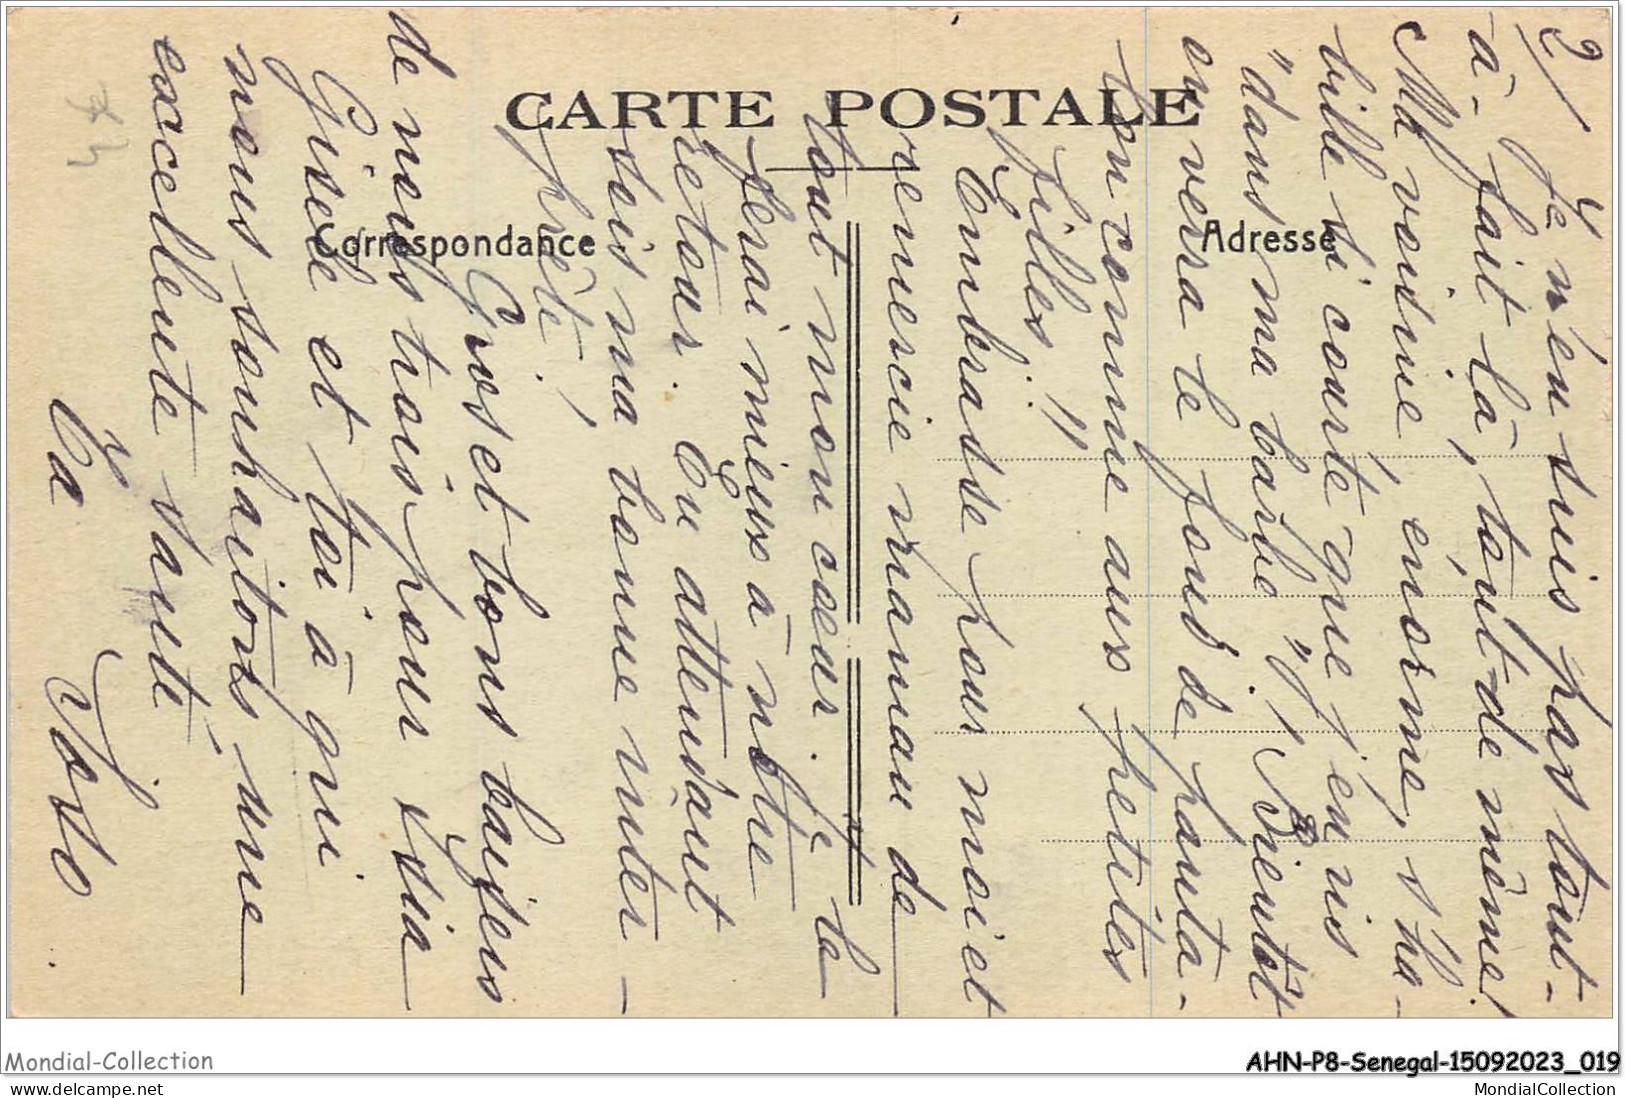 CARTE POSTALE
Correspondance
Adresse
2/ Je n'en suis pas tout-
à-fait là, tout de même!
Ma voisine, énorme, s'ha-
bille si courte que j'en ris
"dans ma barbe"! Bientôt
on verra le fond de panta-
lon comme aux petites
filles!!
Embrasse pour moi et
remercie maman de
tout mon cœur. Je le
ferai mieux à notre
retour. En attendant
sois ma bonne inter-
prète!
Gros et bons baisers
de nous trois pour
Gisèle et toi à qui
nous souhaitons une
excellente santé
Ta
Mondial-Collection
AHN-P8-Senegal-15092023_019
Delcampe.net
MondialCollection